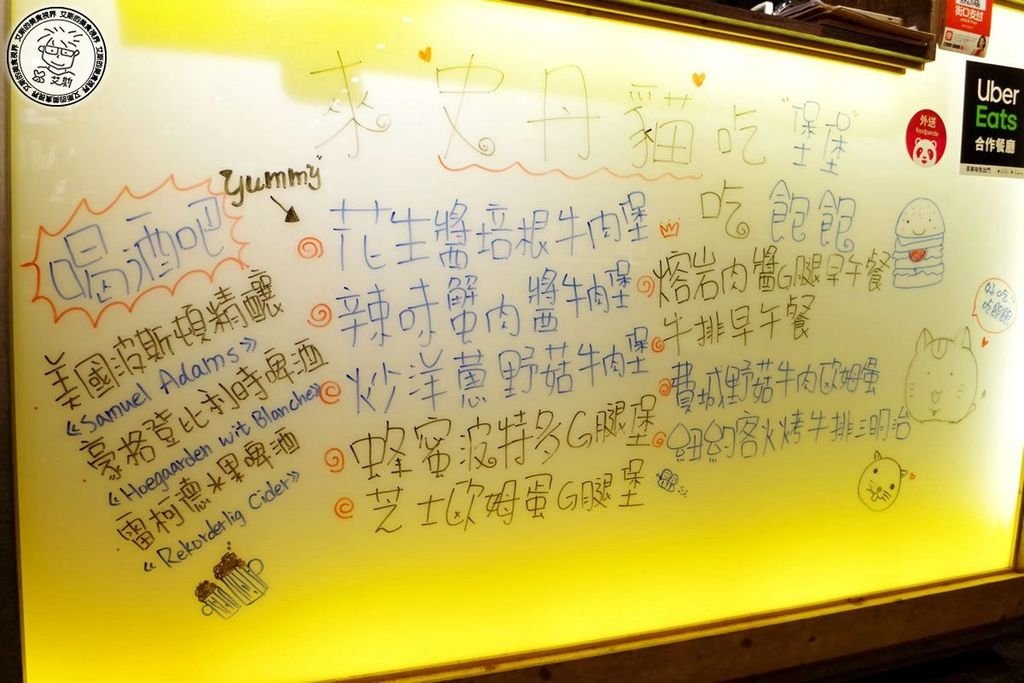 艾斯的美食視界
艾斯
街口支付
Uber
Eats
合作餐廳
外送
foodpanda
來史丹貓吃"堡堡"
吃飽飽
yummy
喝酒吧
美國波斯頓精釀
《Samuel Adams》
豪格登比利時啤酒
《Hoegaarden wit Blanche》
雷柯德水果啤酒
《Rekorderlig Cider》
花生醬培根牛肉堡
辣味蟹肉醬牛肉堡
炒洋蔥野菇牛肉堡
蜂蜜波特多G腿堡
芝士歐姆蛋G腿堡
熔岩肉醬G腿早午餐
牛排早午餐
費城野菇牛肉歐姆蛋
紐約客火烤牛排三明治
吃飽飽